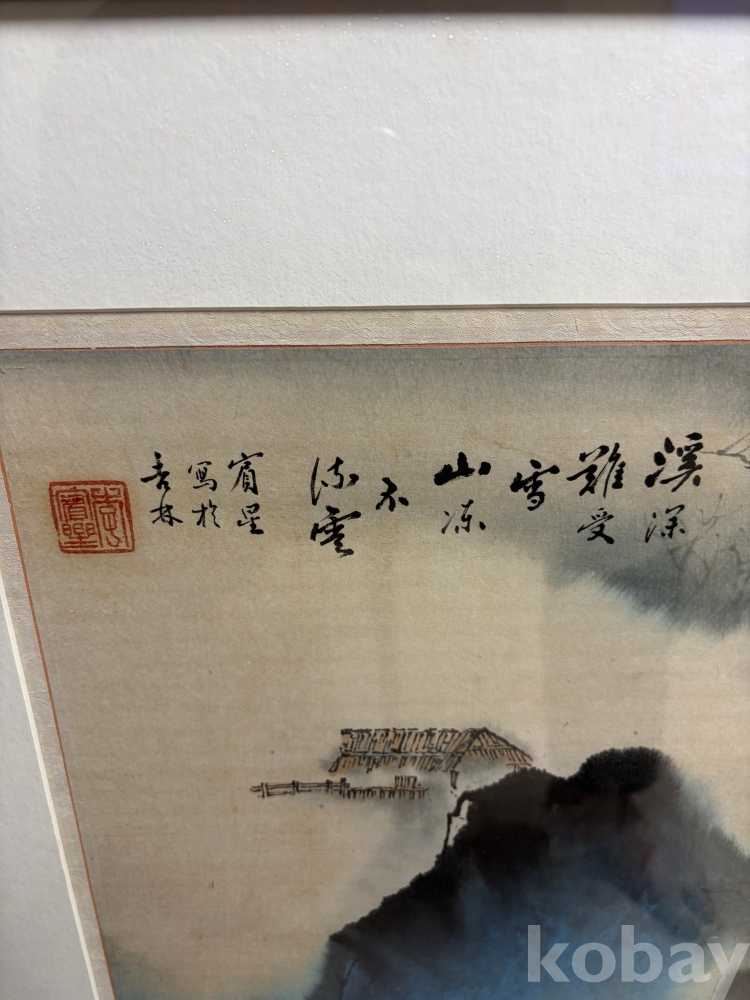 溪深
難受
雪
山凍
不
流雲
賓星
寫於
吉林
kobay